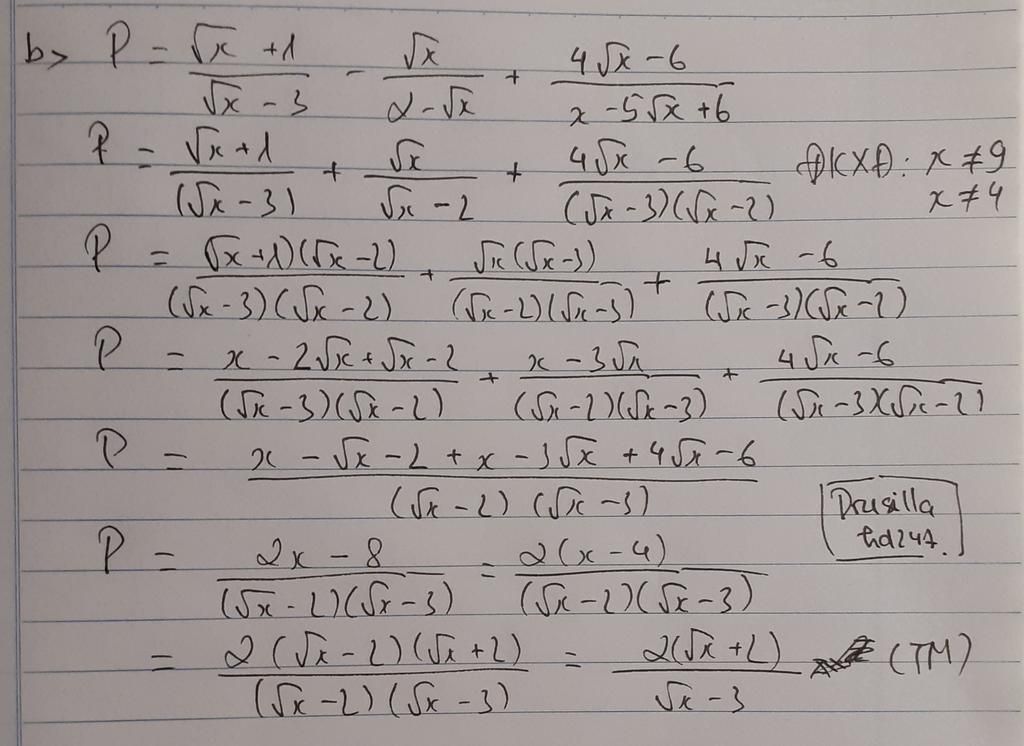 b> P = (√x + 1)/(√x - 3) - √x/(2 - √x) + (4√x - 6)/(x - 5√x + 6)
P = (√x + 1)/((√x - 3)) + √x/(√x - 2) + (4√x - 6)/((√x - 3)(√x - 2)) ĐKXĐ: x ≠ 9
x ≠ 4
P = (√x + 1)(√x - 2)/((√x - 3)(√x - 2)) + √x(√x - 3)/((√x - 2)(√x - 3)) + (4√x - 6)/((√x - 3)(√x - 2))
P = (x - 2√x + √x - 2)/((√x - 3)(√x - 2)) + (x - 3√x)/((√x - 2)(√x - 3)) + (4√x - 6)/((√x - 3)(√x - 2))
P = (x - √x - 2 + x - 3√x + 4√x - 6)/((√x - 2)(√x - 3))
Drusilla
hd247.
P = (2x - 8)/((√x - 2)(√x - 3)) = 2(x - 4)/((√x - 2)(√x - 3))
= 2(√x - 2)(√x + 2)/((√x - 2)(√x - 3)) = 2(√x + 2)/(√x - 3) (TM)